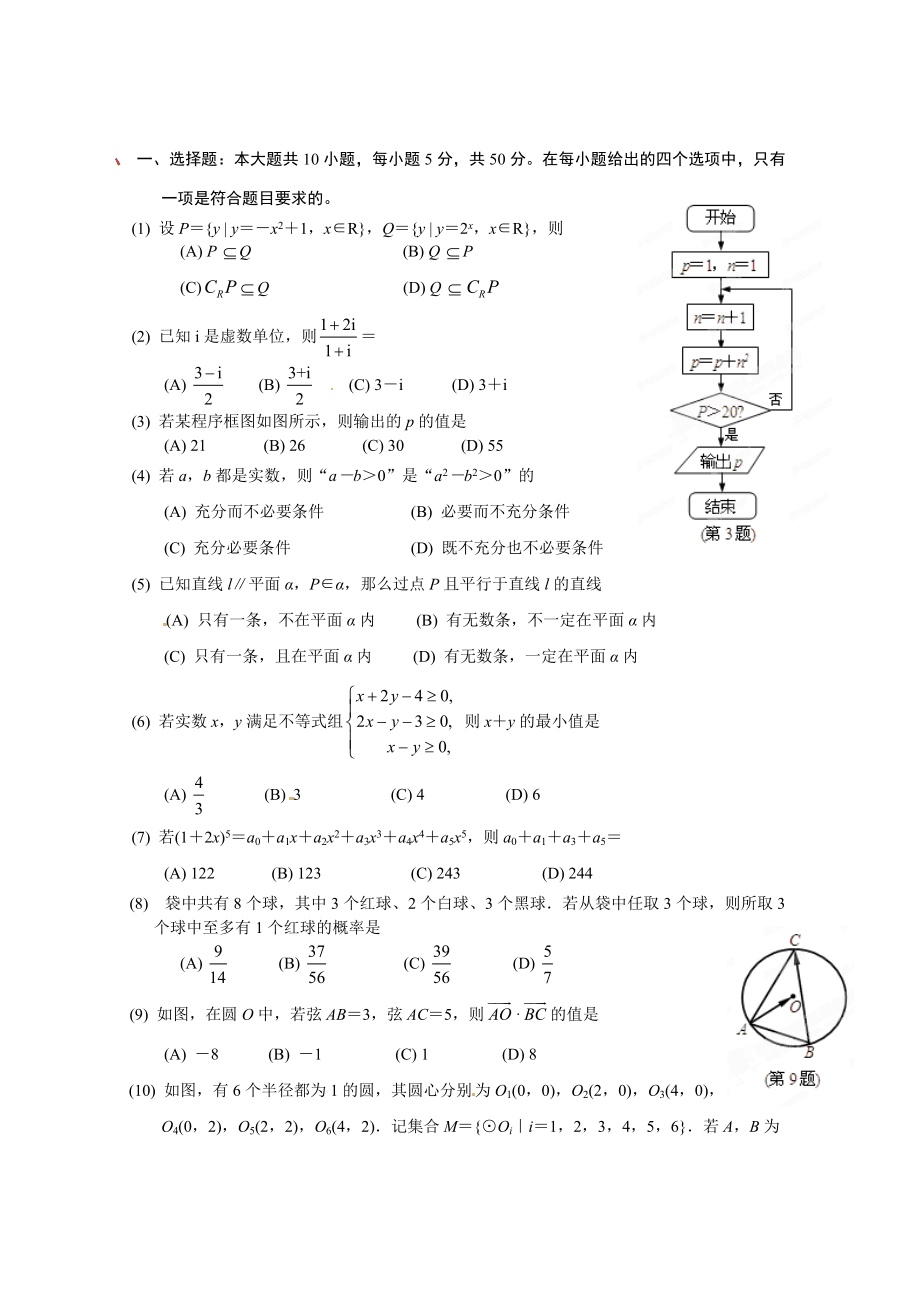 一、选择题：本大题共 10 小题，每小题 5 分，共 50 分。在每小题给出的四个选项中，只有
一项是符合题目要求的。
(1) 设 P＝{y | y＝－x²＋1，x∈R}，Q＝{y | y＝2ˣ，x∈R}，则
(A) P ⊆ Q (B) Q ⊆ P
(C) C_R P ⊆ Q (D) Q ⊆ C_R P
(2) 已知 i 是虚数单位，则 (1+2i)/(1+i) ＝
(A) (3−i)/2 (B) (3+i)/2 (C) 3－i (D) 3＋i
(3) 若某程序框图如图所示，则输出的 p 的值是
(A) 21 (B) 26 (C) 30 (D) 55
开始
p＝1，n＝1
n＝n＋1
p＝p＋n²
P＞20?
否
是
输出 p
结束
(第 3 题)
(4) 若 a，b 都是实数，则“a－b＞0”是“a²－b²＞0”的
(A) 充分而不必要条件 (B) 必要而不充分条件
(C) 充分必要条件 (D) 既不充分也不必要条件
(5) 已知直线 l∥平面 α，P∈α，那么过点 P 且平行于直线 l 的直线
(A) 只有一条，不在平面 α 内 (B) 有无数条，不一定在平面 α 内
(C) 只有一条，且在平面 α 内 (D) 有无数条，一定在平面 α 内
(6) 若实数 x，y 满足不等式组 { x+2y−4≥0, 2x−y−3≥0, x−y≥0, 则 x＋y 的最小值是
(A) 4/3 (B) 3 (C) 4 (D) 6
(7) 若(1＋2x)⁵＝a₀＋a₁x＋a₂x²＋a₃x³＋a₄x⁴＋a₅x⁵，则 a₀＋a₁＋a₃＋a₅＝
(A) 122 (B) 123 (C) 243 (D) 244
(8) 袋中共有 8 个球，其中 3 个红球、2 个白球、3 个黑球．若从袋中任取 3 个球，则所取 3
个球中至多有 1 个红球的概率是
(A) 9/14 (B) 37/56 (C) 39/56 (D) 5/7
(9) 如图，在圆 O 中，若弦 AB＝3，弦 AC＝5，则 AO · BC 的值是
(A) －8 (B) －1 (C) 1 (D) 8
C
O
A
B
(第 9 题)
(10) 如图，有 6 个半径都为 1 的圆，其圆心分别为 O₁(0，0)，O₂(2，0)，O₃(4，0)，
O₄(0，2)，O₅(2，2)，O₆(4，2)．记集合 M＝{⊙Oᵢ｜i＝1，2，3，4，5，6}．若 A，B 为